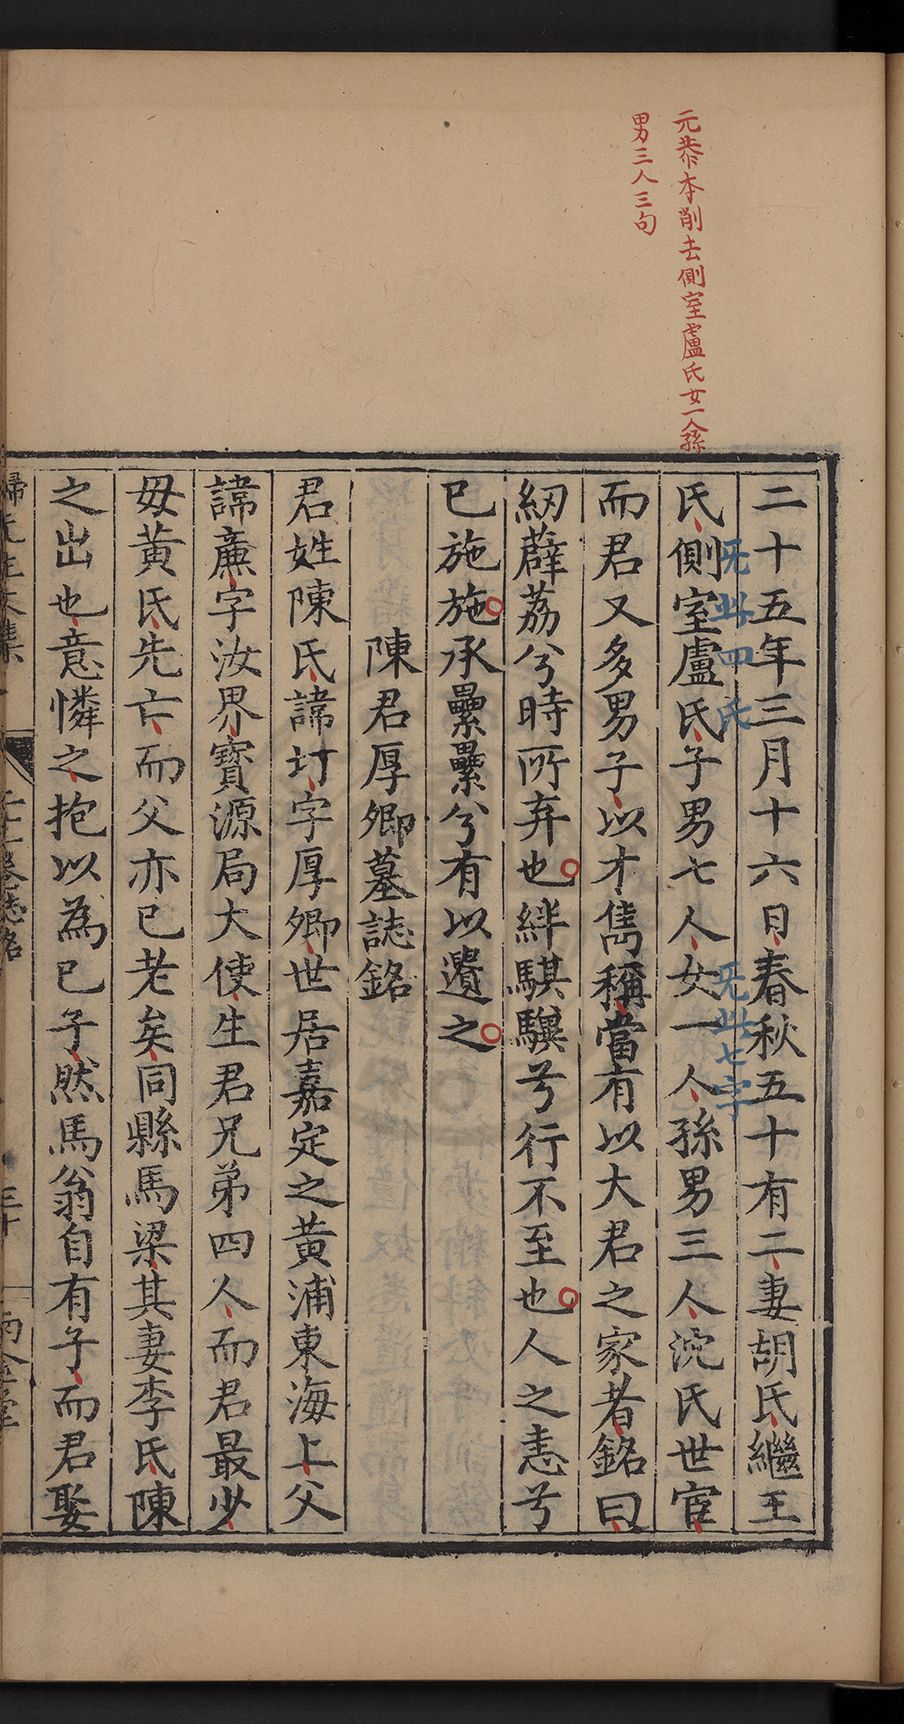 元恭本削去側室盧氏女一人孫
男三人三句
二十五年三月十六日春秋五十有二妻胡氏繼王
旡此四氏
旡此七字
氏側室盧氏子男七人女一人孫男三人沈氏世宦
而君又多男子以才雋稱當有以大君之家者銘曰
紉薜荔兮時所弃也絆騏驥兮行不至也人之恚兮
已施施承纍纍兮有以遺之
陳君厚卿墓誌銘
君姓陳氏諱圢字厚卿世居嘉定之黃浦東海上父
諱亷字汝界寶源局大使生君兄弟四人而君最少
母黃氏先亡而父亦已老矣同縣馬梁其妻李氏陳
之出也意憐之抱以為已子然馬翁自有子而君娶